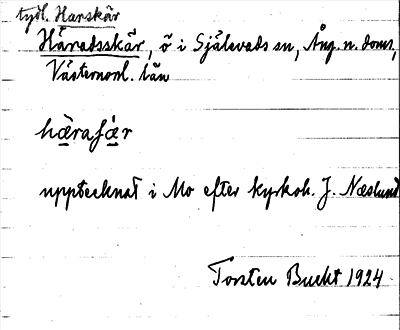 tydl. Harskär
Häradsskär, ö i Själevads sn, Ång. n. doms,
Västernorrl. län
hæ̀rafæ̀r
upptecknat i Mo efter kyrkoh. J. Næslund
Torsten Bucht 1924